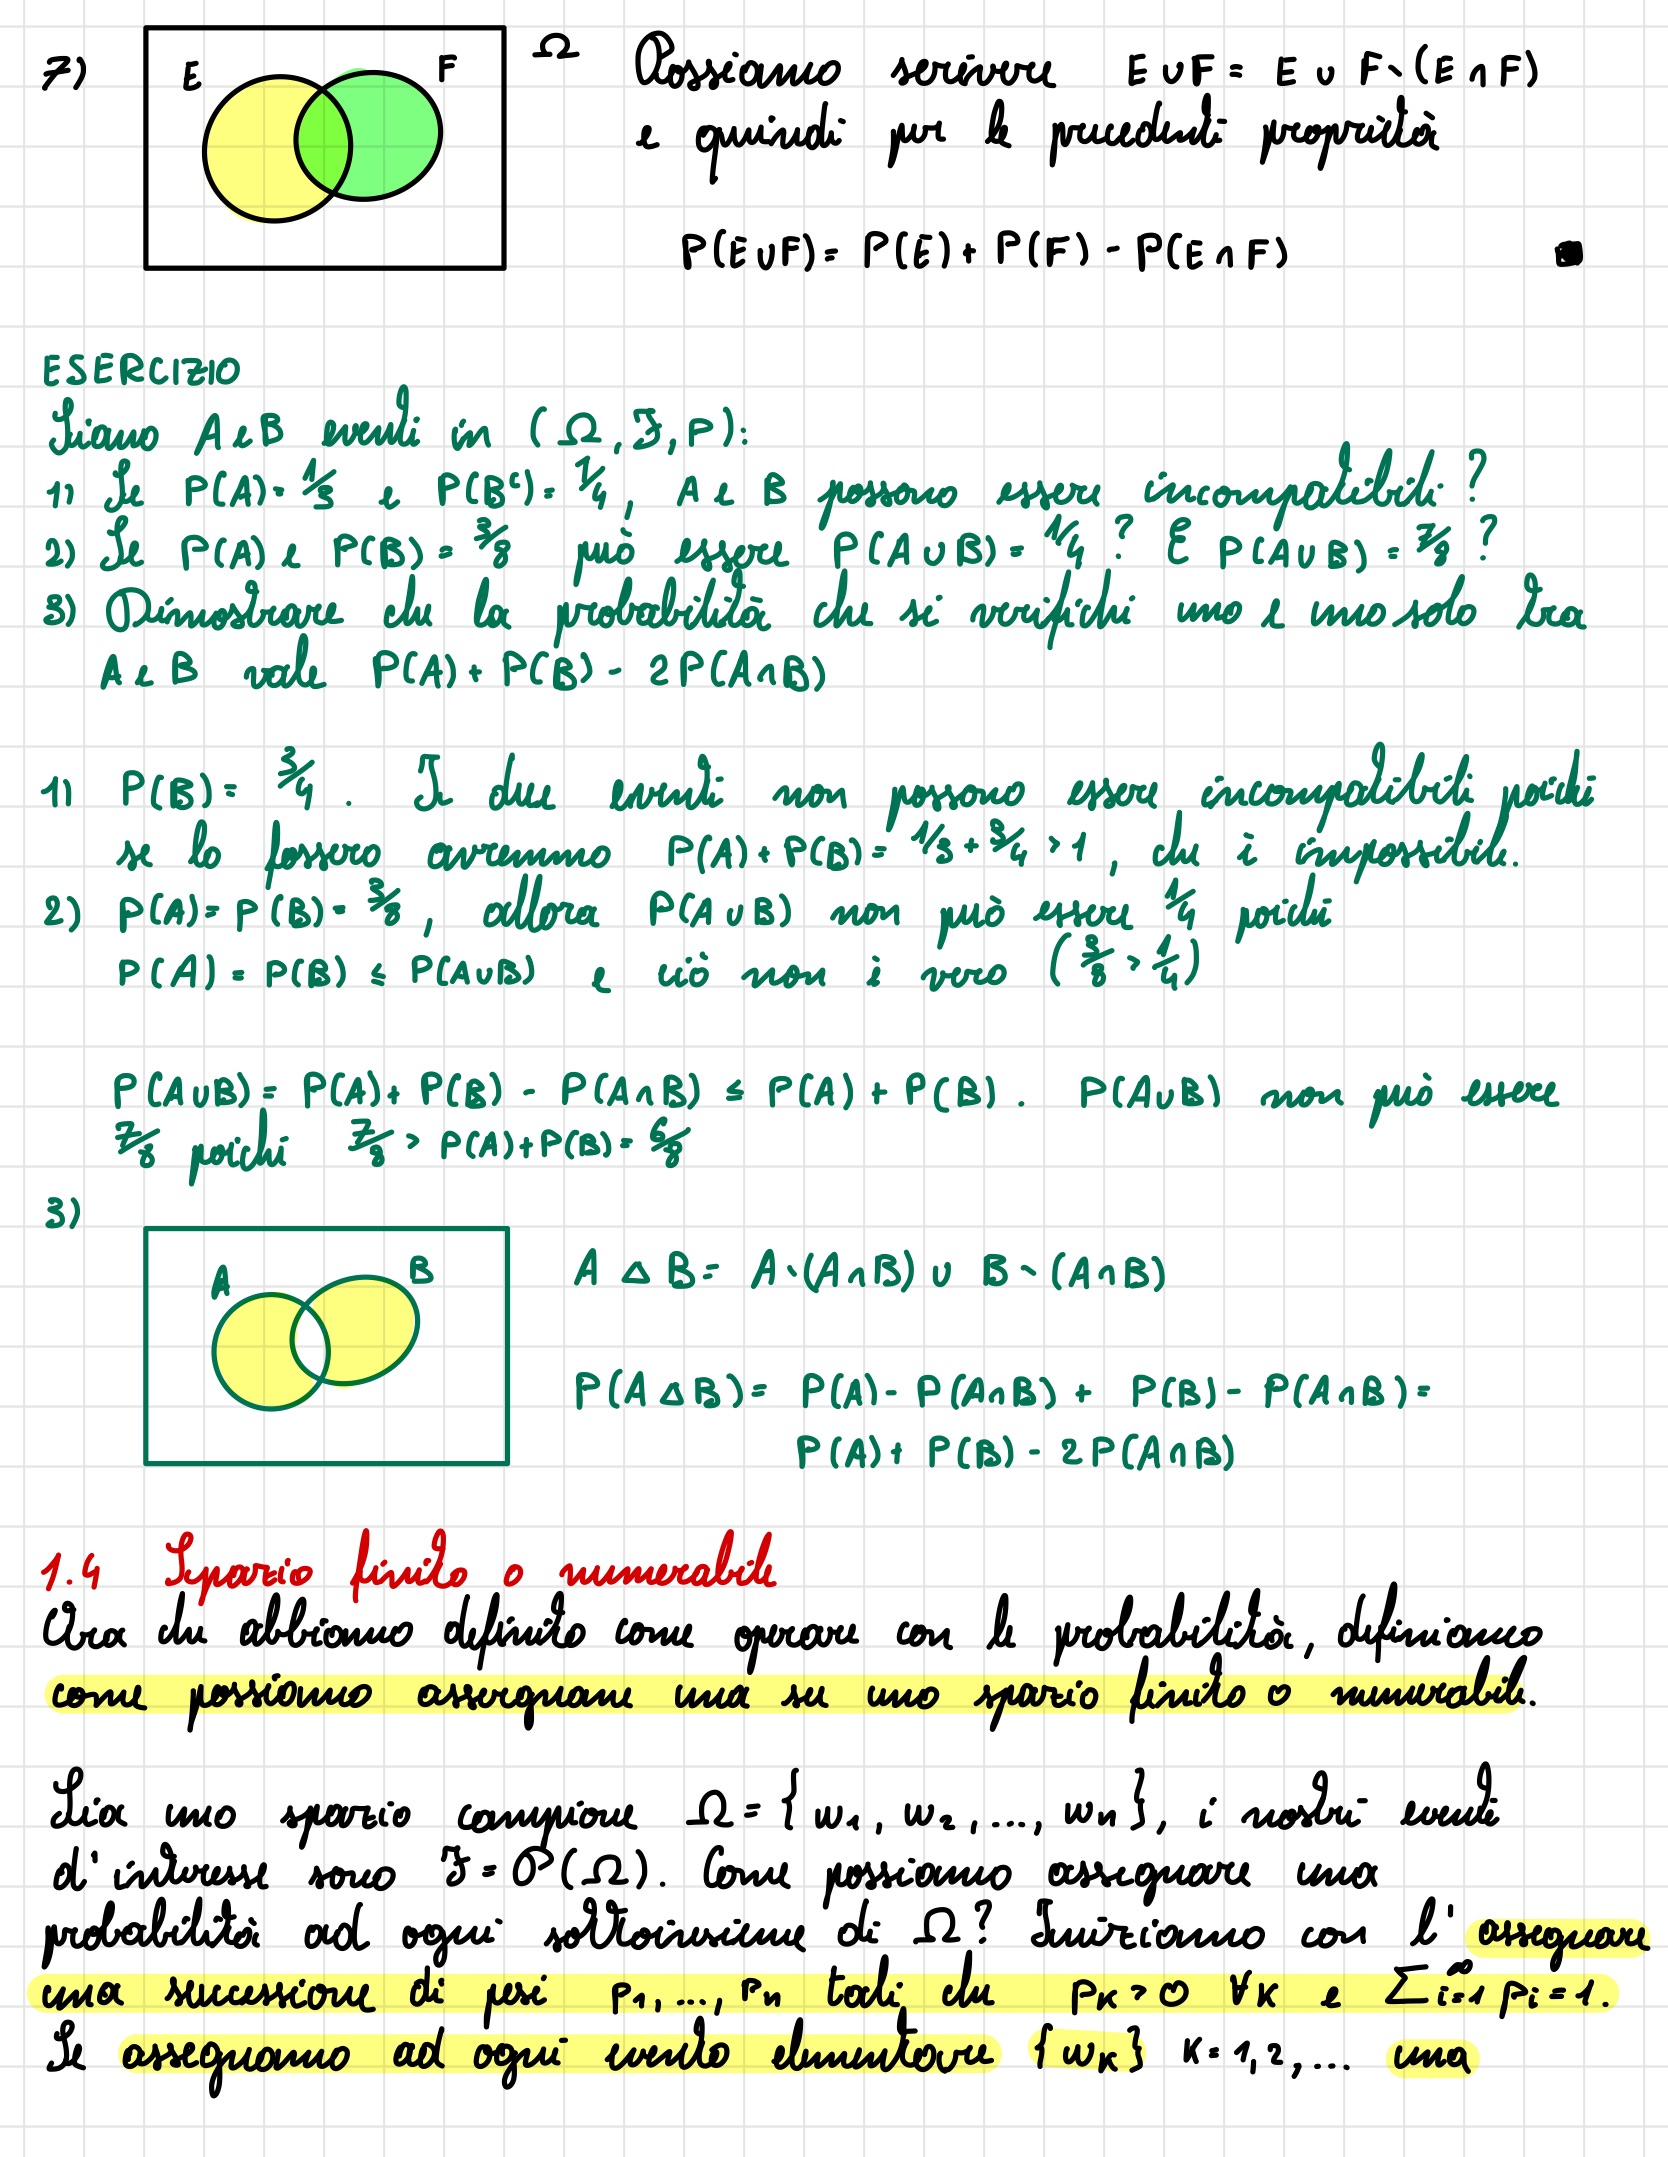 7) E F Ω Possiamo scrivere E∪F = E ∪ F∖(E∩F)
e quindi per le precedenti proprietà
P(E∪F) = P(E) + P(F) - P(E∩F) ■
ESERCIZIO
Siano A e B eventi in (Ω, ℱ, P):
1) Se P(A) = 1/3 e P(Bᶜ) = 1/4, A e B possono essere incompatibili?
2) Se P(A) e P(B) = 3/8 può essere P(A∪B) = 1/4? E P(A∪B) = 7/8?
3) Dimostrare che la probabilità che si verifichi uno e uno solo tra
A e B vale P(A) + P(B) - 2P(A∩B)
1) P(B) = 3/4. I due eventi non possono essere incompatibili poiché
se lo fossero avremmo P(A) + P(B) = 1/3 + 3/4 > 1, che è impossibile.
2) P(A) = P(B) = 3/8, allora P(A∪B) non può essere 1/4 poiché
P(A) = P(B) ≤ P(A∪B) e ciò non è vero (3/8 > 1/4)
P(A∪B) = P(A) + P(B) - P(A∩B) ≤ P(A) + P(B). P(A∪B) non può essere
7/8 poiché 7/8 > P(A) + P(B) = 6/8
3)
A B A △ B = A∖(A∩B) ∪ B∖(A∩B)
P(A △ B) = P(A) - P(A∩B) + P(B) - P(A∩B) =
P(A) + P(B) - 2P(A∩B)
1.4 Spazio finito o numerabile
Ora che abbiamo definito come operare con le probabilità, definiamo
come possiamo assegnane una su uno spazio finito o numerabile.
Sia uno spazio campione Ω = {w₁, w₂, ..., wₙ}, i nostri eventi
d'interesse sono ℱ = 𝒫(Ω). Come possiamo assegnare una
probabilità ad ogni sottoinsieme di Ω? Iniziamo con l'assegnare
una successione di pesi p₁, ..., pₙ tali che pₖ > 0 ∀k e ∑ᵢ₌₁^∞ pᵢ = 1.
Se assegnamo ad ogni evento elementare {wₖ} k = 1, 2, ... una